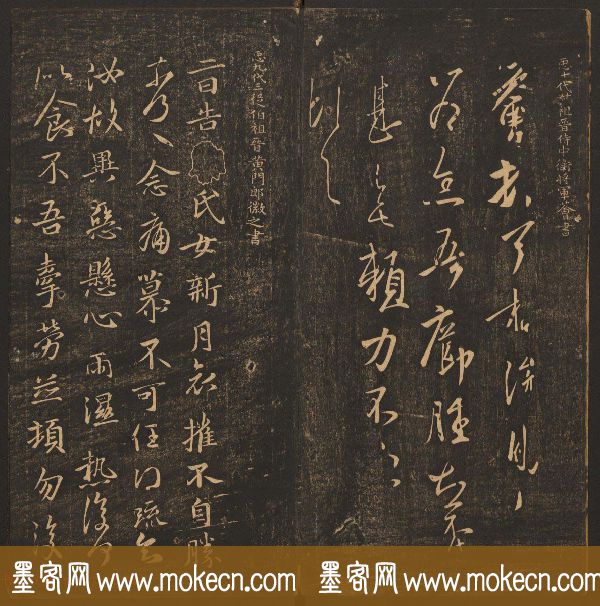 臣十代世祖晉侍中衛將軍薈書
為念吾癤腫
甚無賴力不
臣九代三從伯祖晉黃門郎徽之書
二日告氏女新月哀摧不自勝
奈〻念痛慕不可任得疏知
汝故異惡懸心雨濕熱復何
似食不吾牽勞並頓勿復
墨客网 www.mokecn.com 墨客网 www.mokecn.com